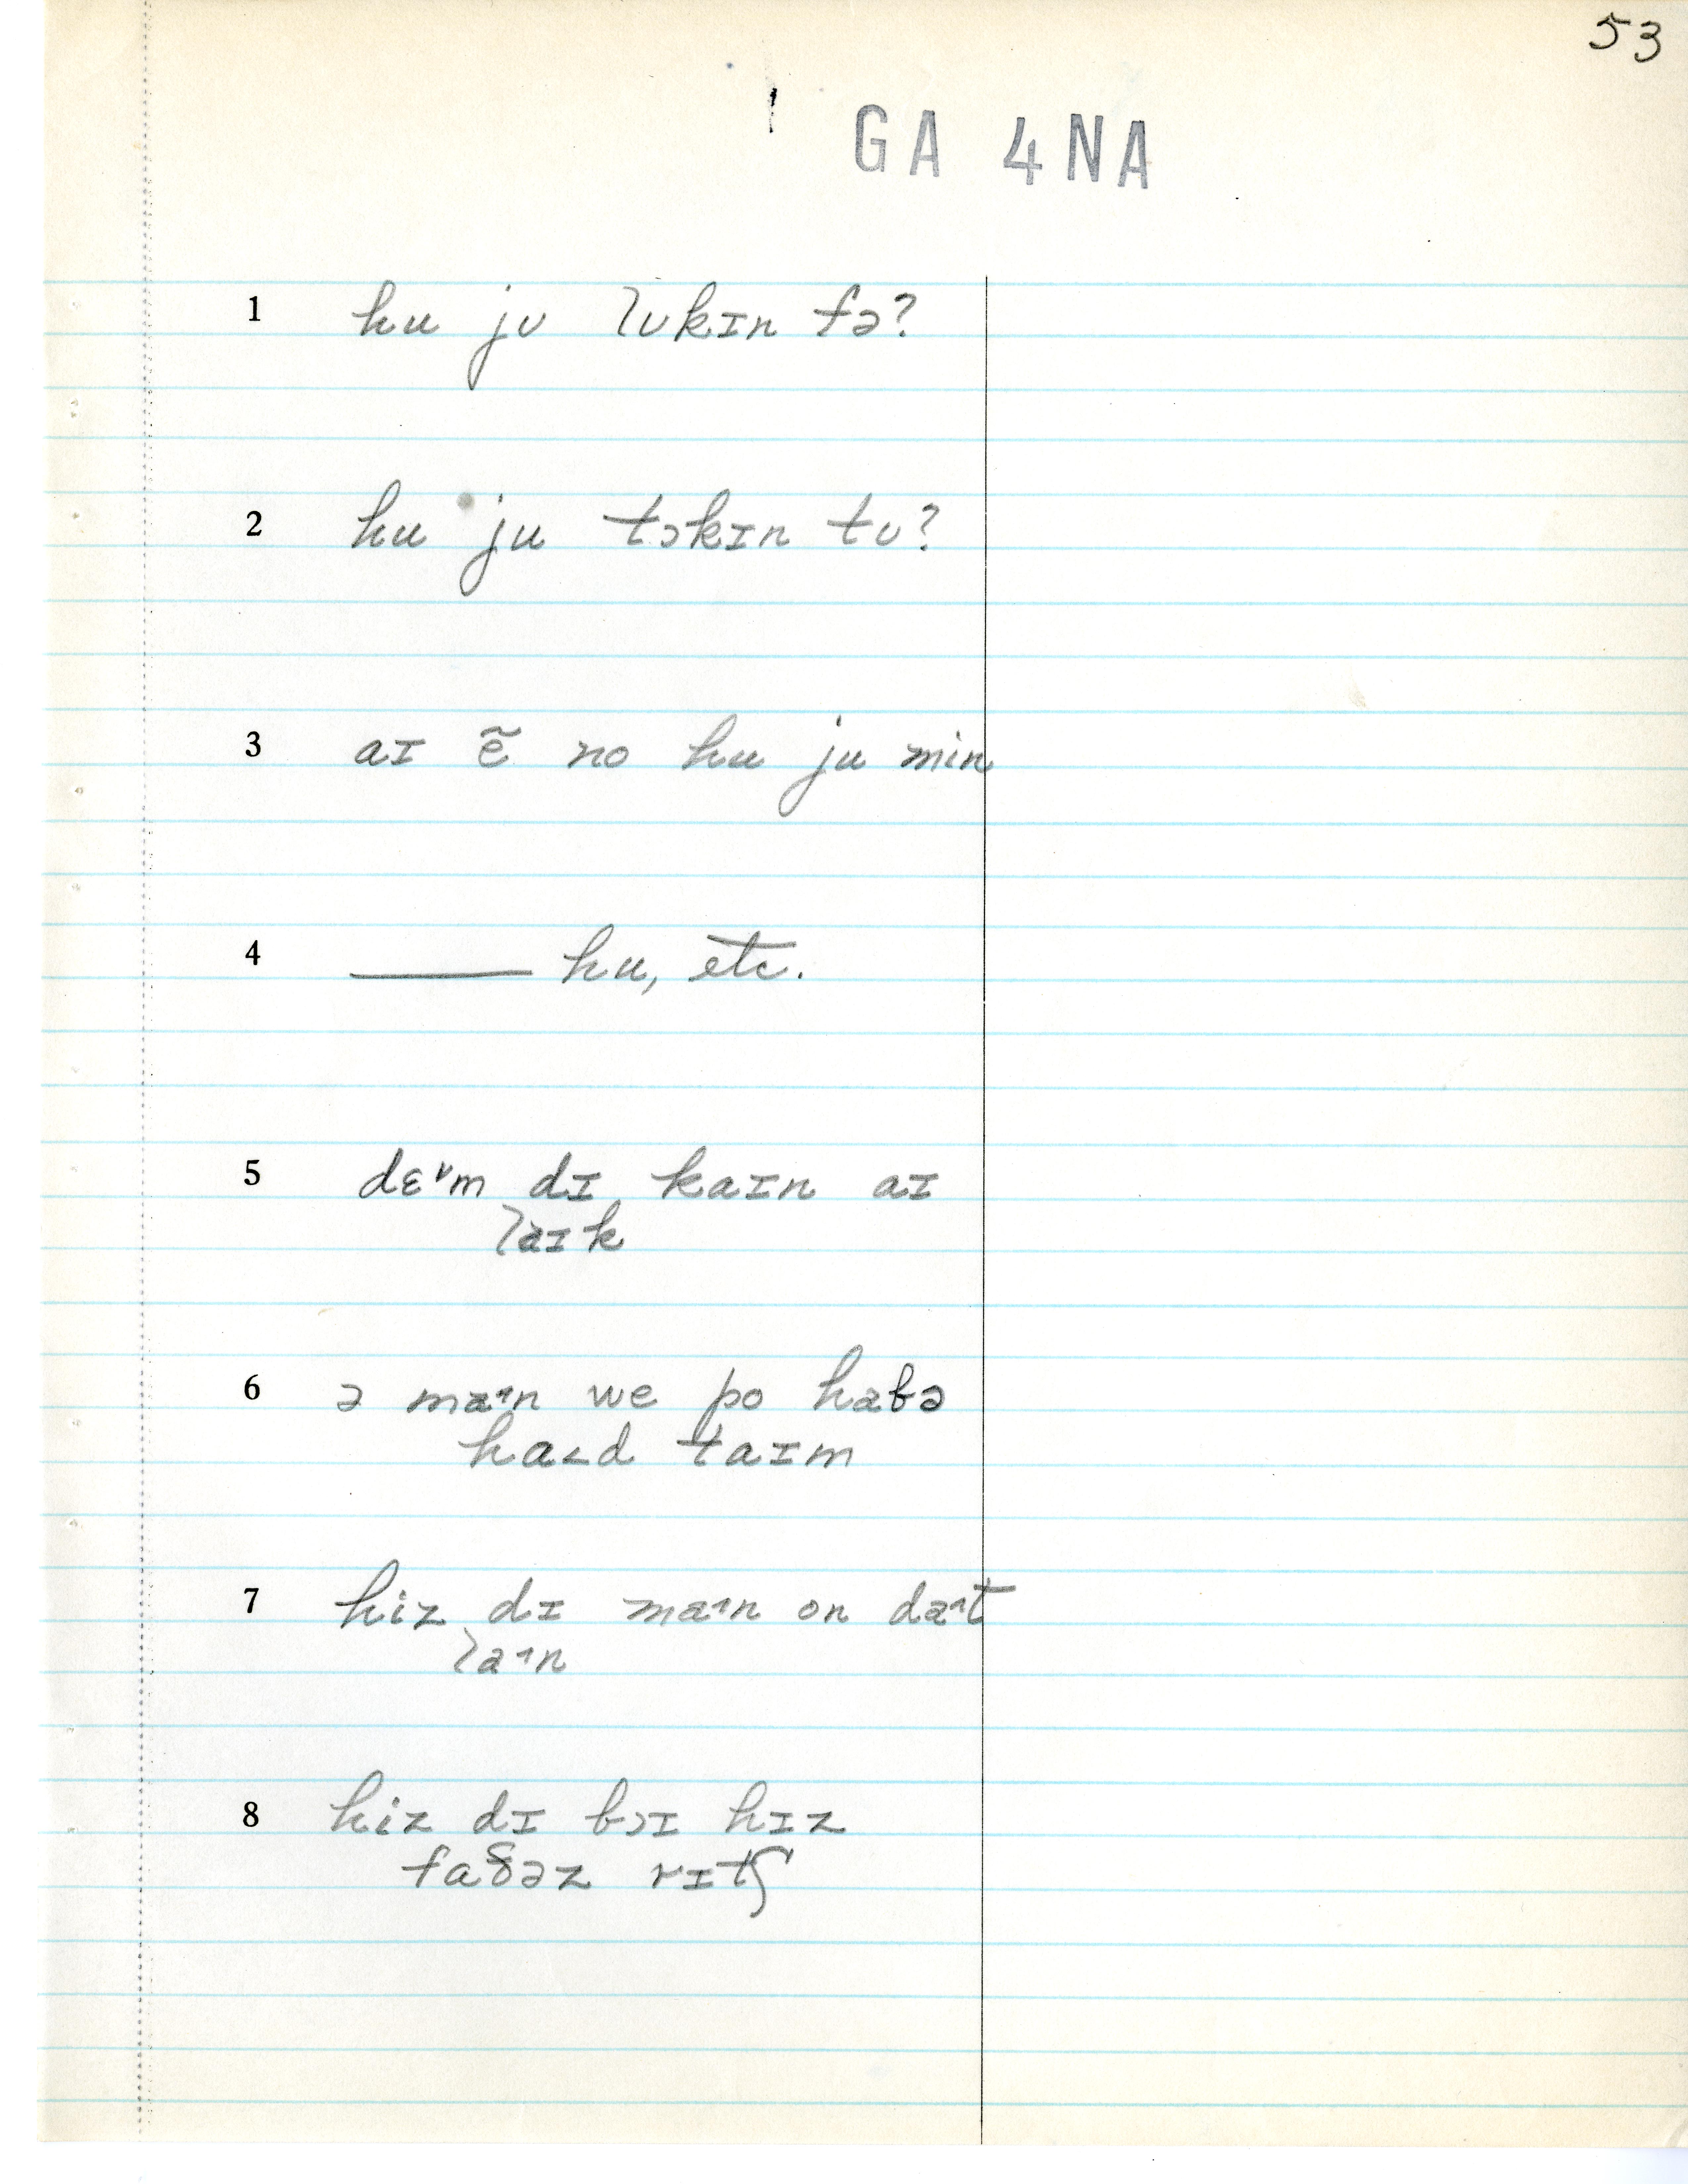 53
GA 4NA
1 hu jʊ lʊkɪn fə?
2 hu ju tɔkɪn tʊ?
3 aɪ ẽ no hu ju min
4 ——— hu, etc.
5 dɛ˅m dɪ kaɪn aɪ
laɪk
6 ə ma˄n we po habə
ha˂d taɪm
7 hiz dɪ ma˄n on da˄t
la˄n
8 hiz dɪ bɔɪ hɪz
faðəz rɪtʃ